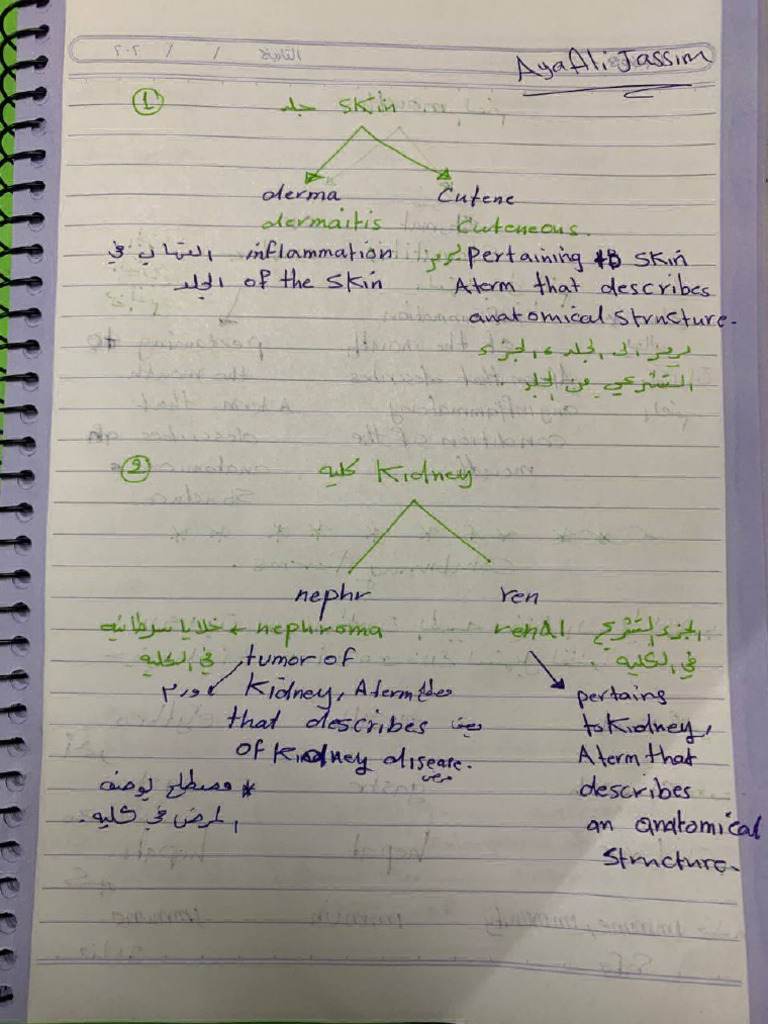 Aya Ali Jassim
① جلد Skin
derma Cutene
dermaitis Cuteneous.
التهاب في inflammation يرمز pertaining to skin
الجلد of the skin A term that describes
anatomical structure.
يرمز الى الجلد، الجزء
التشريعي من الجلد
② كليه Kidney
nephr ren
خلايا سرطانيه nephroma renal الجزء التشريعي
في الكليه tumor of في الكليه.
ورم Kidney, A term مصطلح pertains
that describes يصف to Kidney,
of Kidney disease. مرض A term that
* مصطلح لوصف describes
المرض في كليه. an anatomical
structure.